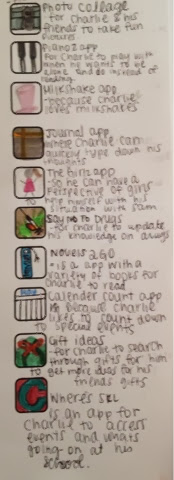 Photo Collage
for Charlie & his
friends to take fun
pictures
Piano2 app
For Charlie to play with
when he wants to be
alone and do instead of
reading
Milkshake app
-because Charlie
loves milkshakes
Journal app
where Charlie can
quickly type down his
thoughts
The Girls app
-so he can have a
perspective of girls
to help himself with his
situation with Sam
Say no to Drugs
-for Charlie to update
his knowledge on drugs
Novels 2 GO
-is a app with a
variety of books for
Charlie to read
Calender count app
is because Charlie
likes to count down
to special events
Gift ideas
-for Charlie to search
through gifts for him
to get more ideas for his
friends gifts
Where's
is an app for
Charlie to access
events and whats
going on at his
school.